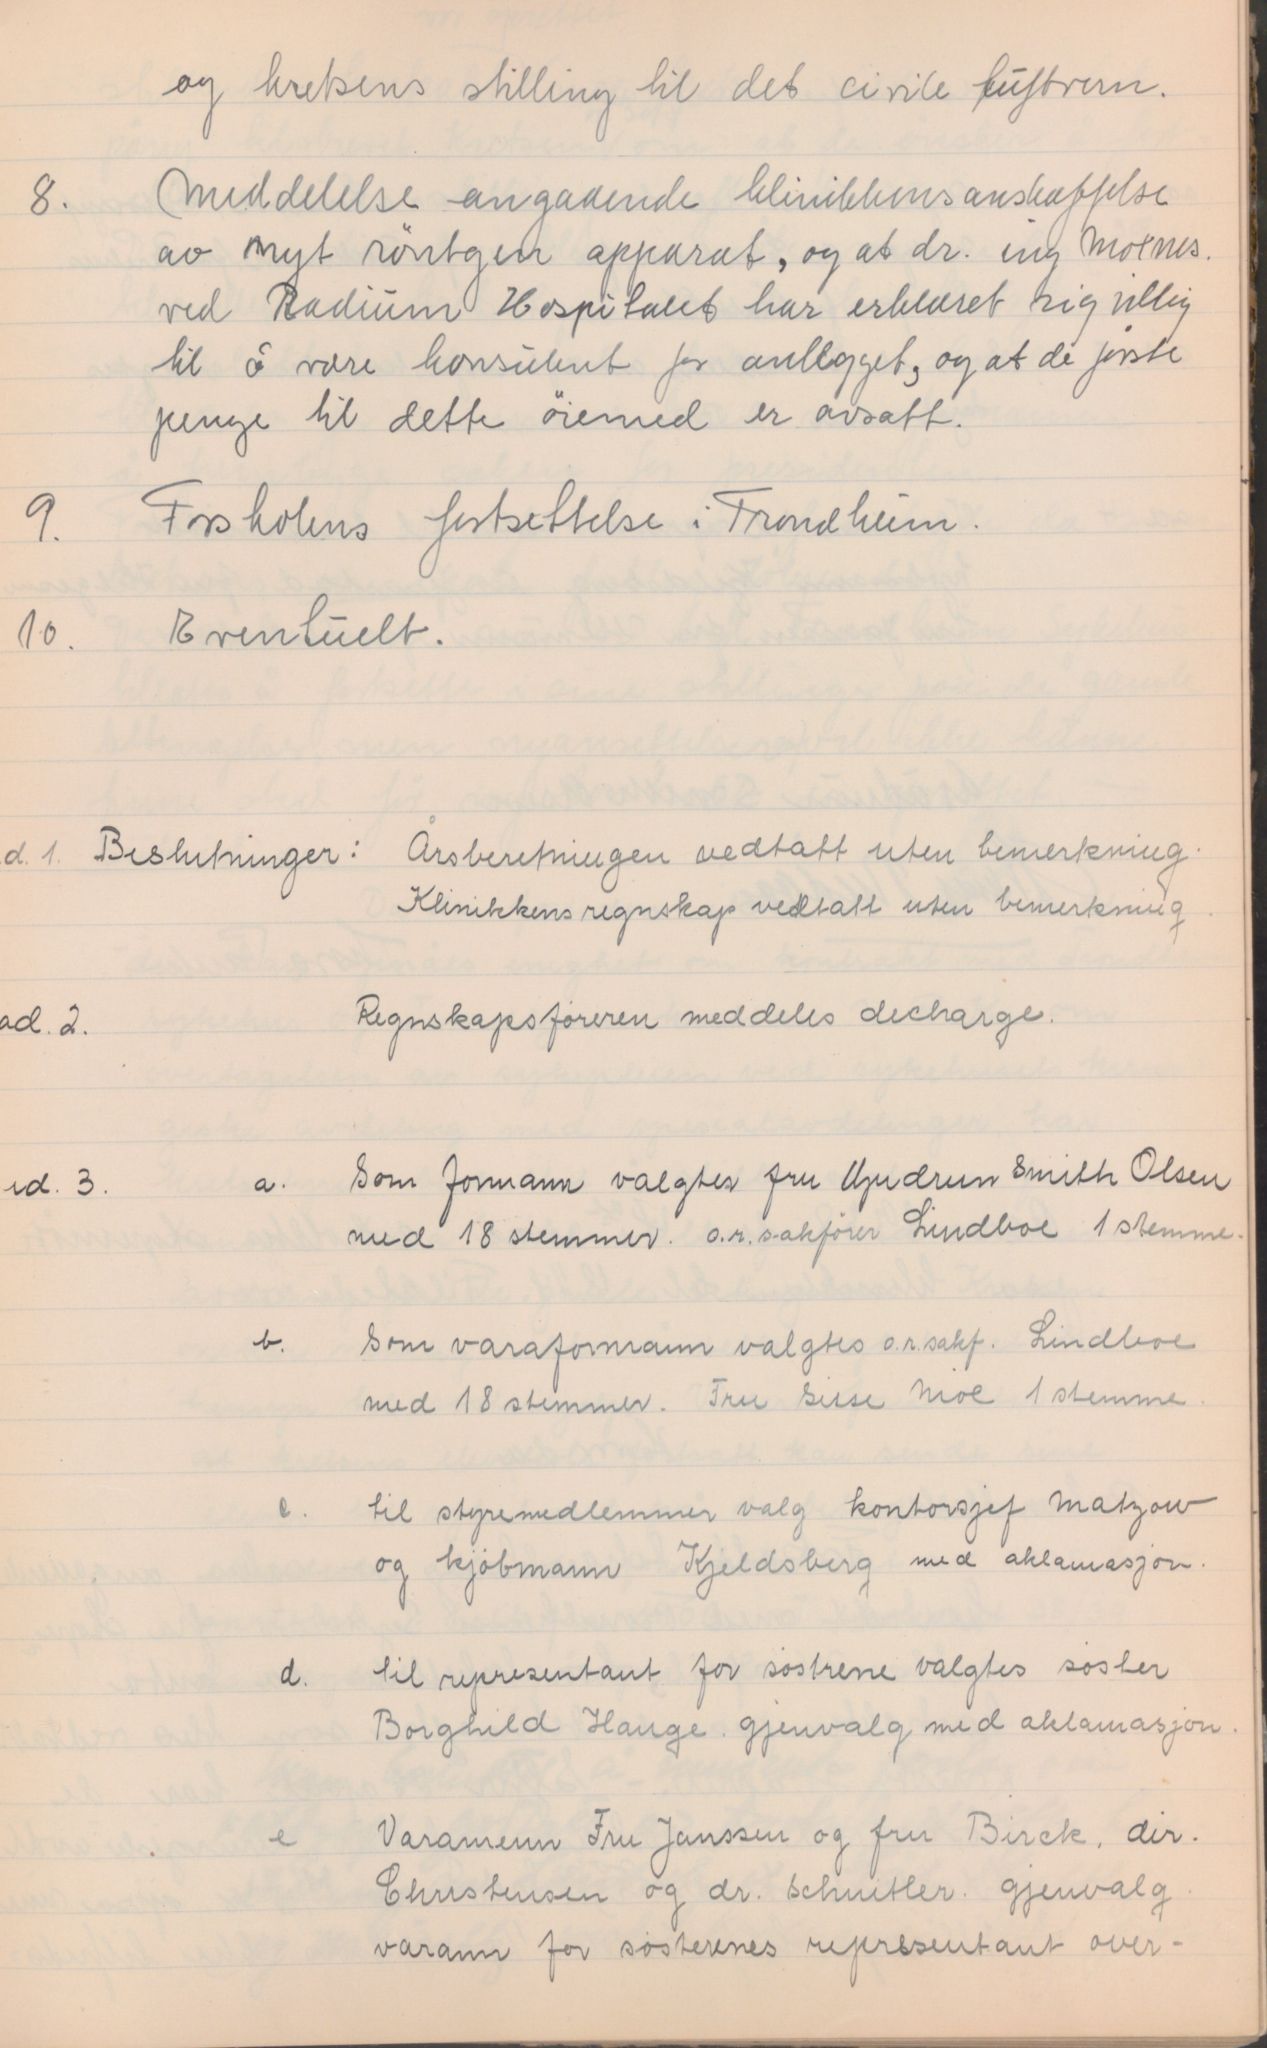 og kretsens stilling til det civile luftvern.
8. Meddelelse angaaende klinikkens anskaffelse
av nyt röntgen apparat, og at dr. ing Moxnes.
ved Radium Hospitalet har erklæret sig villig
til å være konsulent for anlegget, og at de første
penge til dette öiemed er avsatt.
9. Forskolens fortsettelse i Trondheim.
10. Eventuelt.
d. 1. Beslutninger: Årsberetningen vedtatt uten bemerkning.
Klinikkens regnskap vedtatt uten bemerkning.
ad. 2. Regnskapsføreren meddeles decharge.
ad. 3. a. Som formann valgtes fru Gudrun Smith Olsen
med 18 stemmer. o.r.sakfører Lindboe 1 stemme.
b. Som varaformann valgtes o.r.sakf. Lindboe
med 18 stemmer. Fru Sisse Moe 1 stemme.
c. til styremedlemmer valg kontorsjef Matzow
og kjøbmann Kjeldsberg med aklamasjon.
d. til representant for søstrene valgtes søster
Borghild Hauge. gjenvalg med aklamasjon.
e Varamenn Fru Janssen og fru Birck, dir.
Christensen og dr. Schnitler. gjenvalg.
varann for søsterenes representant over-